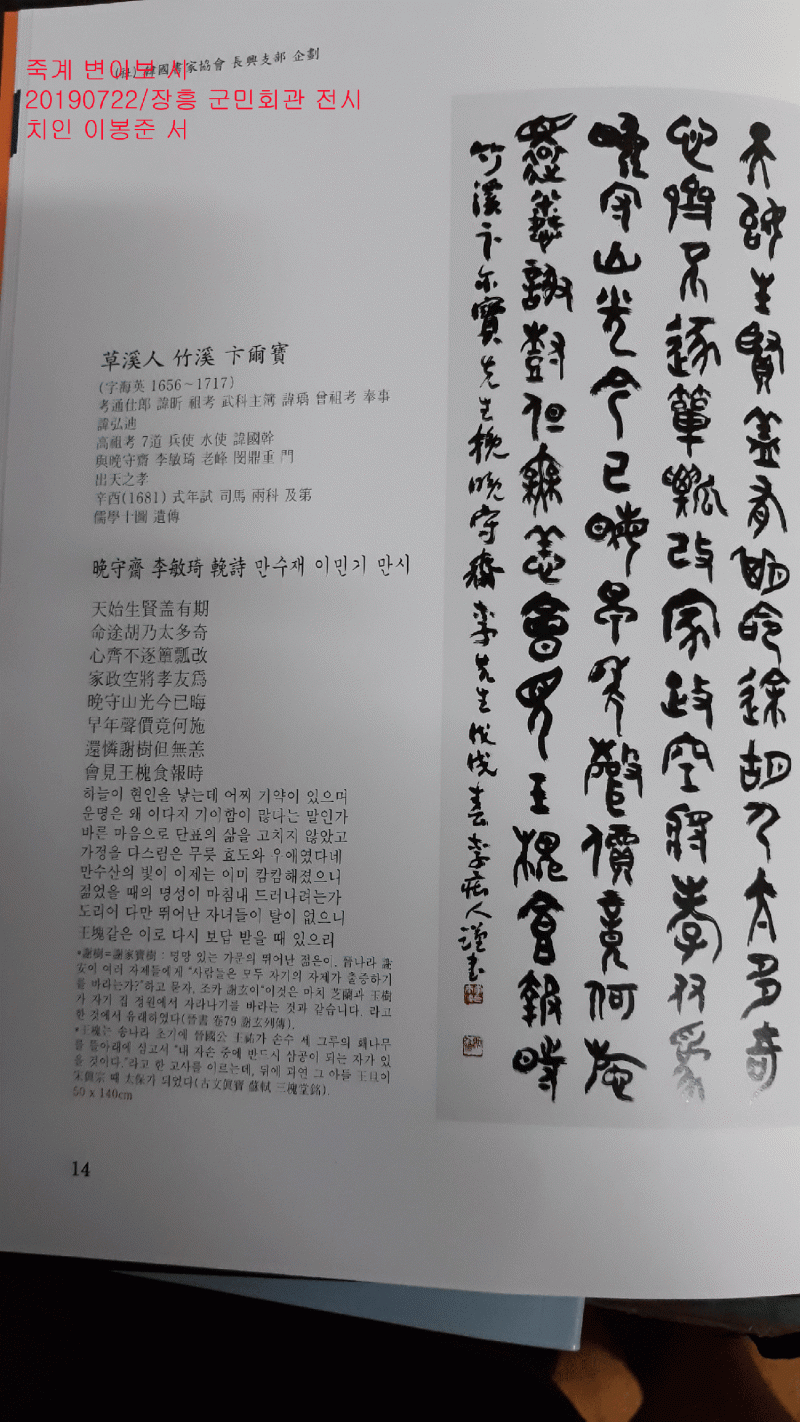 죽계 변이보 시
20190722/장흥 군민회관 전시
치인 이봉준 서
韓國書家協會 長興支部 企劃
草溪人 竹溪 卞爾寶
(字海英 1656~1717)
考通仕郎 諱昕 祖考 武科主簿 諱瑀 曾祖考 奉事
諱弘迪
高祖考 7道 兵使 水使 諱國幹
與晩守齋 李敏琦 老峰 閔鼎重 門
出天之孝
辛酉(1681) 式年試 司馬 兩科 及第
儒學十圖 遺傳
晩守齋 李敏琦 輓詩 만수재 이민기 만시
天始生賢盖有期
命途胡乃太多奇
心齊不逐簞瓢改
家政空將孝友爲
晩守山光今已晦
早年聲價竟何施
還憐謝樹但無恙
會見王槐食報時
하늘이 현인을 낳는데 어찌 기약이 있으며
운명은 왜 이다지 기이함이 많나는 말인가
바른 마음으로 단표의 삶을 고치지 않았고
가정을 다스림은 무릇 효도와 우애였다네
만수산의 빛이 이제는 이미 캄캄해졌으니
젊었을 때의 명성이 마침내 드러나려는가
도리어 다만 뛰어난 자녀들이 탈이 없으니
王塊같은 이로 다시 보답 받을 때 있으리
*謝樹=謝家寶樹 : 명망 있는 가문의 뛰어난 젊은이. 晉나라 謝
安이 여러 자제들에게 "사람들은 모두 자기의 자제가 출중하기
를 바라는가?"하고 묻자, 조카 謝玄이"이것은 마치 芝蘭과 玉樹
가 자기 집 정원에서 자라나기를 바라는 것과 같습니다. 라고
한 것에서 유래하였다(晉書 卷79 謝玄列傳).
*王槐는 송나라 초기에 晉國公 王祐가 손수 세 그루의 홰나무
를 뜰아래에 심고서 "내 자손 중에 반드시 삼공이 되는 자가 있
을 것이다."라고 한 고사를 이르는데, 뒤에 과연 그 아들 王旦이
宋眞宗 때 太保가 되었다(古文眞寶 蘇軾 三槐堂銘).
50 x 140cm
14
天始生賢盖有期命途胡乃太多奇
心齊不逐簞瓢改家政空將孝友爲
晩守山光今已晦早年聲價竟何施
還憐謝樹但無恙會見王槐食報時
竹溪卞爾寶先生輓晩守齋李先生戊戌春李痴人謹書